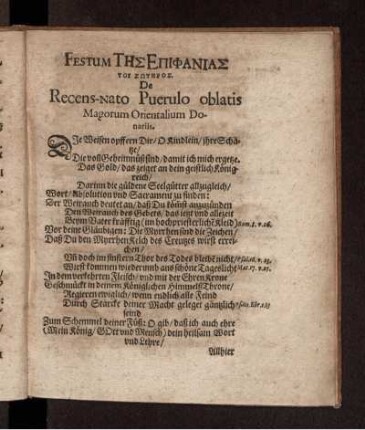 FESTUM ΤΗΣ ΕΠΙΦΑΝΙΑΣ
ΤΟΥ ΣΩΤΗΡΟΣ.
De
Recens-nato Puerulo oblatis
Magorum Orientalium Do-
nariis.
DJe Weisen opffern Dir / O Kindlein / ihre Schä-
tze /
Die voll Geheimnüß sind / damit ich mich ergetze.
Das Gold / das zeiget an dein geistlich König-
reich /
Darinn die güldene Seelgütter allzugleich /
Wort / Absolution und Sacrament zu finden:
Der Weirauch deutet an / daß Du könnst anzuzünden
Den Weirauch des Gebets / das jetzt und allezeit
Beym Vater kräfftig (im hochpriesterlich? Kleid)
Vor deine Gläubigen: Die Myrrhen sind die Zeichen /
Daß Du den Myrrhen Kelch des Creutzes wirst errei-
chen /
Uñ doch im finstern Thor des Todes bleibst nicht /
Wirst kommen wiederumb ans schöne Tageslicht
In dem verklehrten Fleisch / und mit der Ehren Krone
Geschmückt in deinem Königlichen Himmels Throne /
Regieren ewiglich / wenn endlich alle Feind
Durch Stärcke deiner Macht geleget gäntzlich
seind
Zum Schemmel deiner Füß: O gib / daß ich auch ehre
(Mein König / GOtt und Mensch) dein heilsam Wort
und Lehre /
Allhier